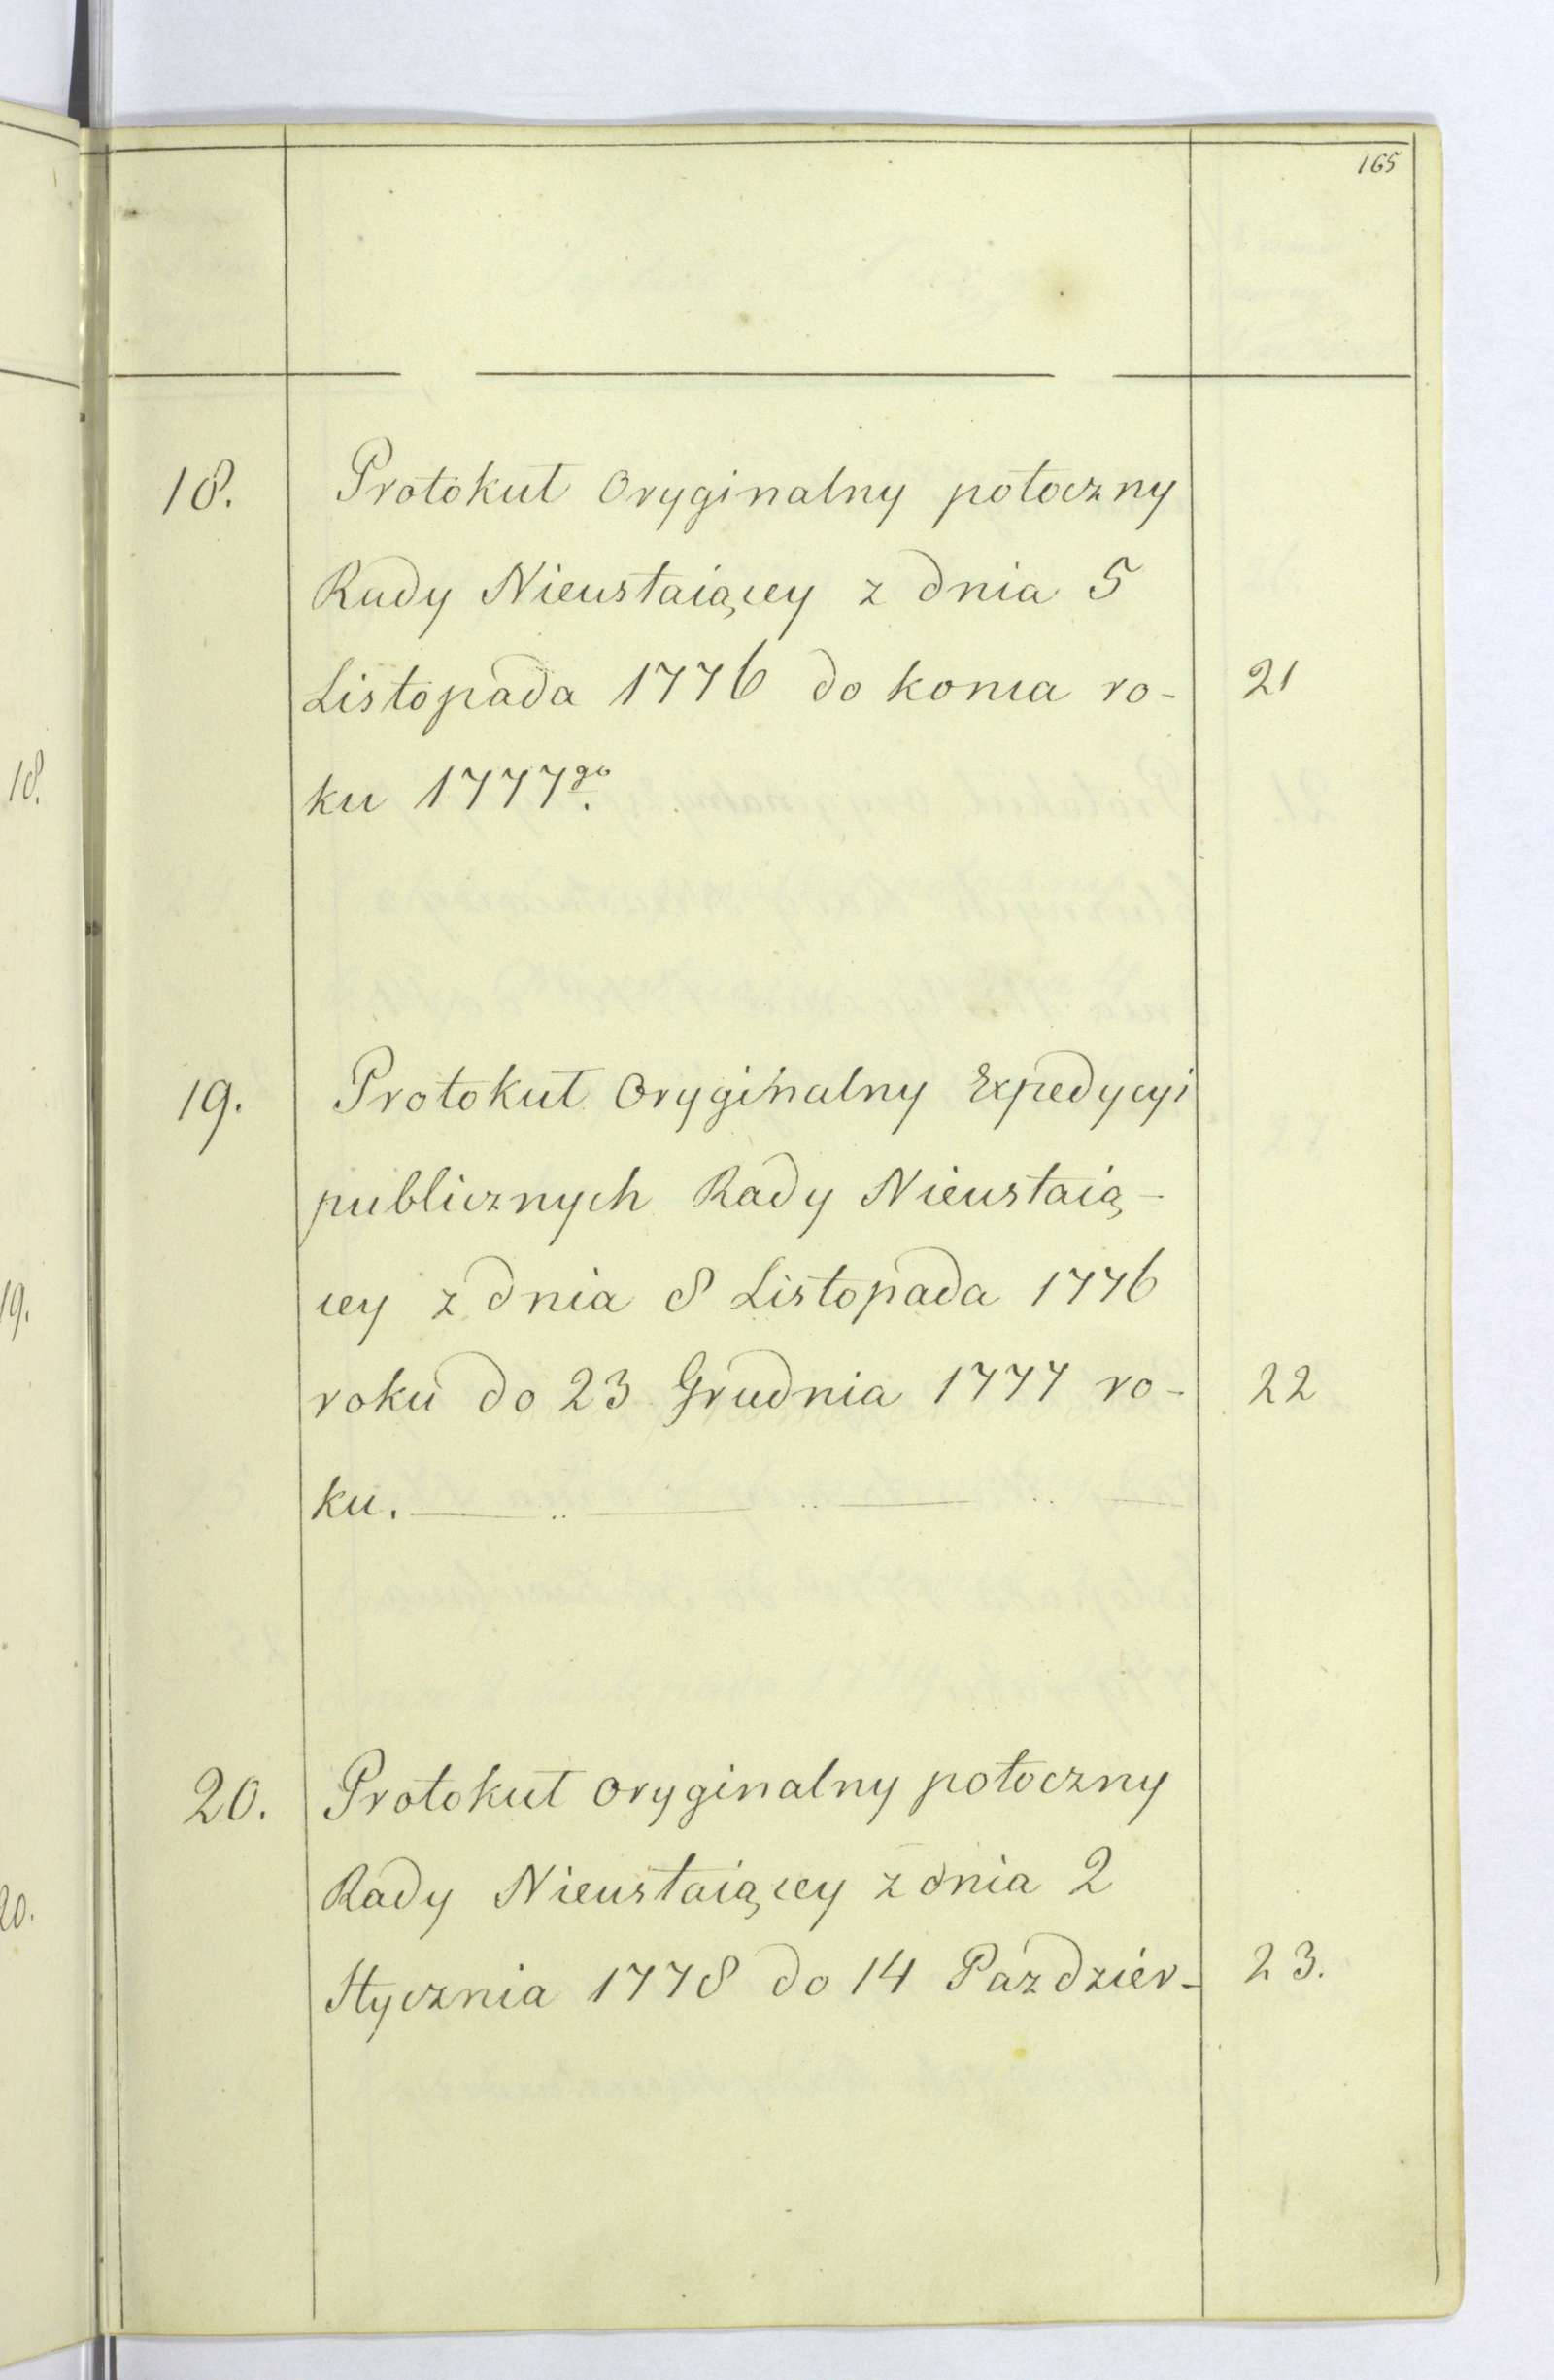 165
18. Protokuł Oryginalny potoczny
Rady Nieustaiącey z dnia 5
Listopada 1776 do końca ro- 21
ku 1777go.
19. Protokuł Oryginalny Expedycyi
publicznych Rady Nieustaią-
cey z dnia 8 Listopada 1776
roku do 23 Grudnia 1777 ro- 22
ku.
20. Protokuł Oryginalny potoczny
Rady Nieustaiącey z dnia 2
Stycznia 1778 do 14 Paździer- 23.
18.
19.
20.